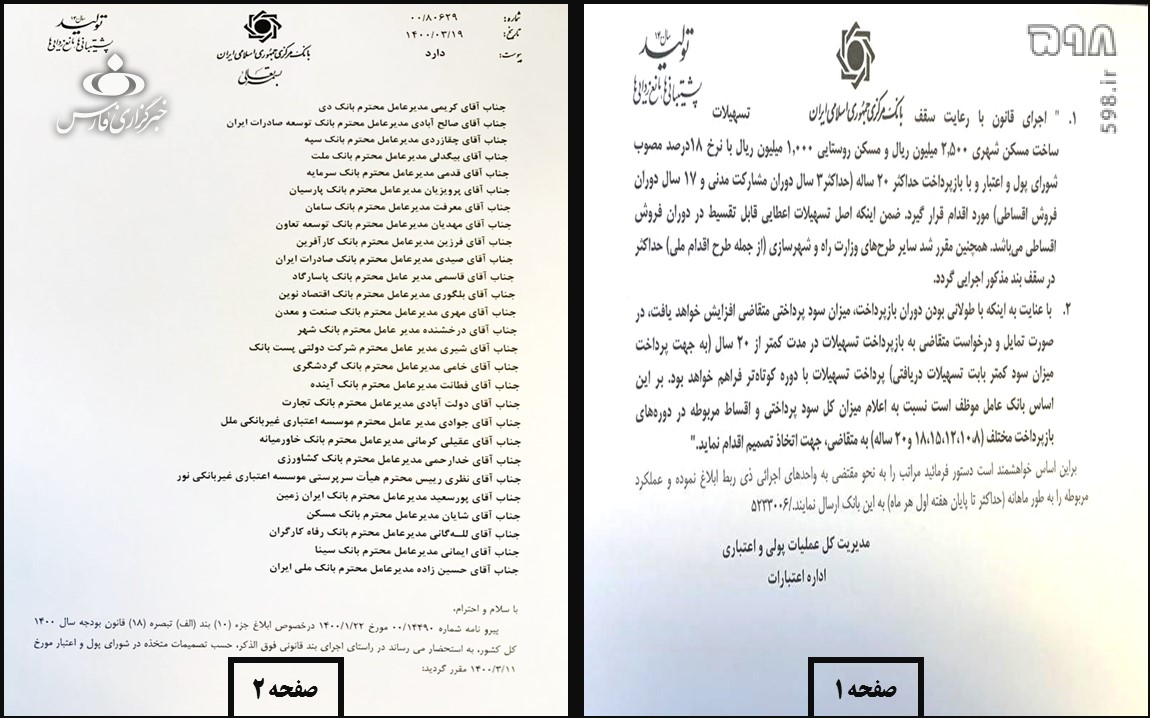 شماره: ۰۰/۸۰۶۲۹
تاریخ: ۱۴۰۰/۰۳/۱۹
پیوست: دارد
بانک مرکزی جمهوری اسلامی ایران
بسمه تعالی
سال ۱۴۰۰
تولید
پشتیبانی‌ها مانع‌زدایی‌ها
خبرگزاری فارس
جناب آقای کریمی مدیرعامل محترم بانک دی
جناب آقای صالح آبادی مدیرعامل محترم بانک توسعه صادرات ایران
جناب آقای چقازردی مدیرعامل محترم بانک سپه
جناب آقای بیگدلی مدیرعامل محترم بانک ملت
جناب آقای قدمی مدیرعامل محترم بانک سرمایه
جناب آقای پرویزیان مدیرعامل محترم بانک پارسیان
جناب آقای معرفت مدیرعامل محترم بانک سامان
جناب آقای مهدیان مدیرعامل محترم بانک توسعه تعاون
جناب آقای فرزین مدیرعامل محترم بانک کارآفرین
جناب آقای صیدی مدیر عامل محترم بانک صادرات ایران
جناب آقای قاسمی مدیر عامل محترم بانک پاسارگاد
جناب آقای بلگوری مدیرعامل محترم بانک اقتصاد نوین
جناب آقای مهری مدیرعامل محترم بانک صنعت و معدن
جناب آقای درخشنده مدیر عامل محترم بانک شهر
جناب آقای شیری مدیر عامل محترم شرکت دولتی پست بانک
جناب آقای خامی مدیرعامل محترم بانک گردشگری
جناب آقای فطانت مدیرعامل محترم بانک آینده
جناب آقای دولت آبادی مدیرعامل محترم بانک تجارت
جناب آقای جوادی مدیر عامل محترم موسسه اعتباری غیربانکی ملل
جناب آقای عقیلی کرمانی مدیرعامل محترم بانک خاورمیانه
جناب آقای خدارحمی مدیرعامل محترم بانک کشاورزی
جناب آقای نظری رییس محترم هیأت سرپرستی موسسه اعتباری غیربانکی نور
جناب آقای پورسعید مدیرعامل محترم بانک ایران زمین
جناب آقای شایان مدیرعامل محترم بانک مسکن
جناب آقای للـه‌گانی مدیرعامل محترم بانک رفاه کارگران
جناب آقای ایمانی مدیرعامل محترم بانک سینا
جناب آقای حسین زاده مدیرعامل محترم بانک ملی ایران
با سلام و احترام،
پیرو نامه شماره ۰۰/۱۴۴۹۰ مورخ ۱۴۰۰/۱/۲۲ درخصوص ابلاغ جزء (۱۰) بند (الف) تبصره (۱۸) قانون بودجه سال ۱۴۰۰
کل کشور، به استحضار می رساند در راستای اجرای بند قانونی فوق الذکر، حسب تصمیمات متخذه در شورای پول و اعتبار مورخ
۱۴۰۰/۳/۱۱ مقرر گردید:
صفحه ۲
۵۹۸
598.ir
سال ۱۴۰۰
تولید
پشتیبانی‌ها مانع‌زدایی‌ها
بانک مرکزی جمهوری اسلامی ایران
۱. " اجرای قانون با رعایت سقف تسهیلات
ساخت مسکن شهری ۲,۵۰۰ میلیون ریال و مسکن روستایی ۱,۰۰۰ میلیون ریال با نرخ ۱۸درصد مصوب
شورای پول و اعتبار و با بازپرداخت حداکثر ۲۰ ساله (حداکثر۳ سال دوران مشارکت مدنی و ۱۷ سال دوران
فروش اقساطی) مورد اقدام قرار گیرد. ضمن اینکه اصل تسهیلات اعطایی قابل تقسیط در دوران فروش
اقساطی می‌باشد. همچنین مقرر شد سایر طرح‌های وزارت راه و شهرسازی (از جمله طرح اقدام ملی) حداکثر
در سقف بند مذکور اجرایی گردد.
۲. با عنایت به اینکه با طولانی بودن دوران بازپرداخت، میزان سود پرداختی متقاضی افزایش خواهد یافت، در
صورت تمایل و درخواست متقاضی به بازپرداخت تسهیلات در مدت کمتر از ۲۰ سال (به جهت پرداخت
میزان سود کمتر بابت تسهیلات دریافتی) پرداخت تسهیلات با دوره کوتاه‌تر فراهم خواهد بود. بر این
اساس بانک عامل موظف است نسبت به اعلام میزان کل سود پرداختی و اقساط مربوطه در دوره‌های
بازپرداخت مختلف (۱۸،۱۵،۱۲،۱۰،۸ و۲۰ ساله) به متقاضی، جهت اتخاذ تصمیم اقدام نماید."
براین اساس خواهشمند است دستور فرمائید مراتب را به نحو مقتضی به واحدهای اجرائی ذی ربط ابلاغ نموده و عملکرد
مربوطه را به طور ماهانه (حداکثر تا پایان هفته اول هر ماه) به این بانک ارسال نمایند./۵۲۳۳۰۰۶
مدیریت کل عملیات پولی و اعتباری
اداره اعتبارات
صفحه ۱